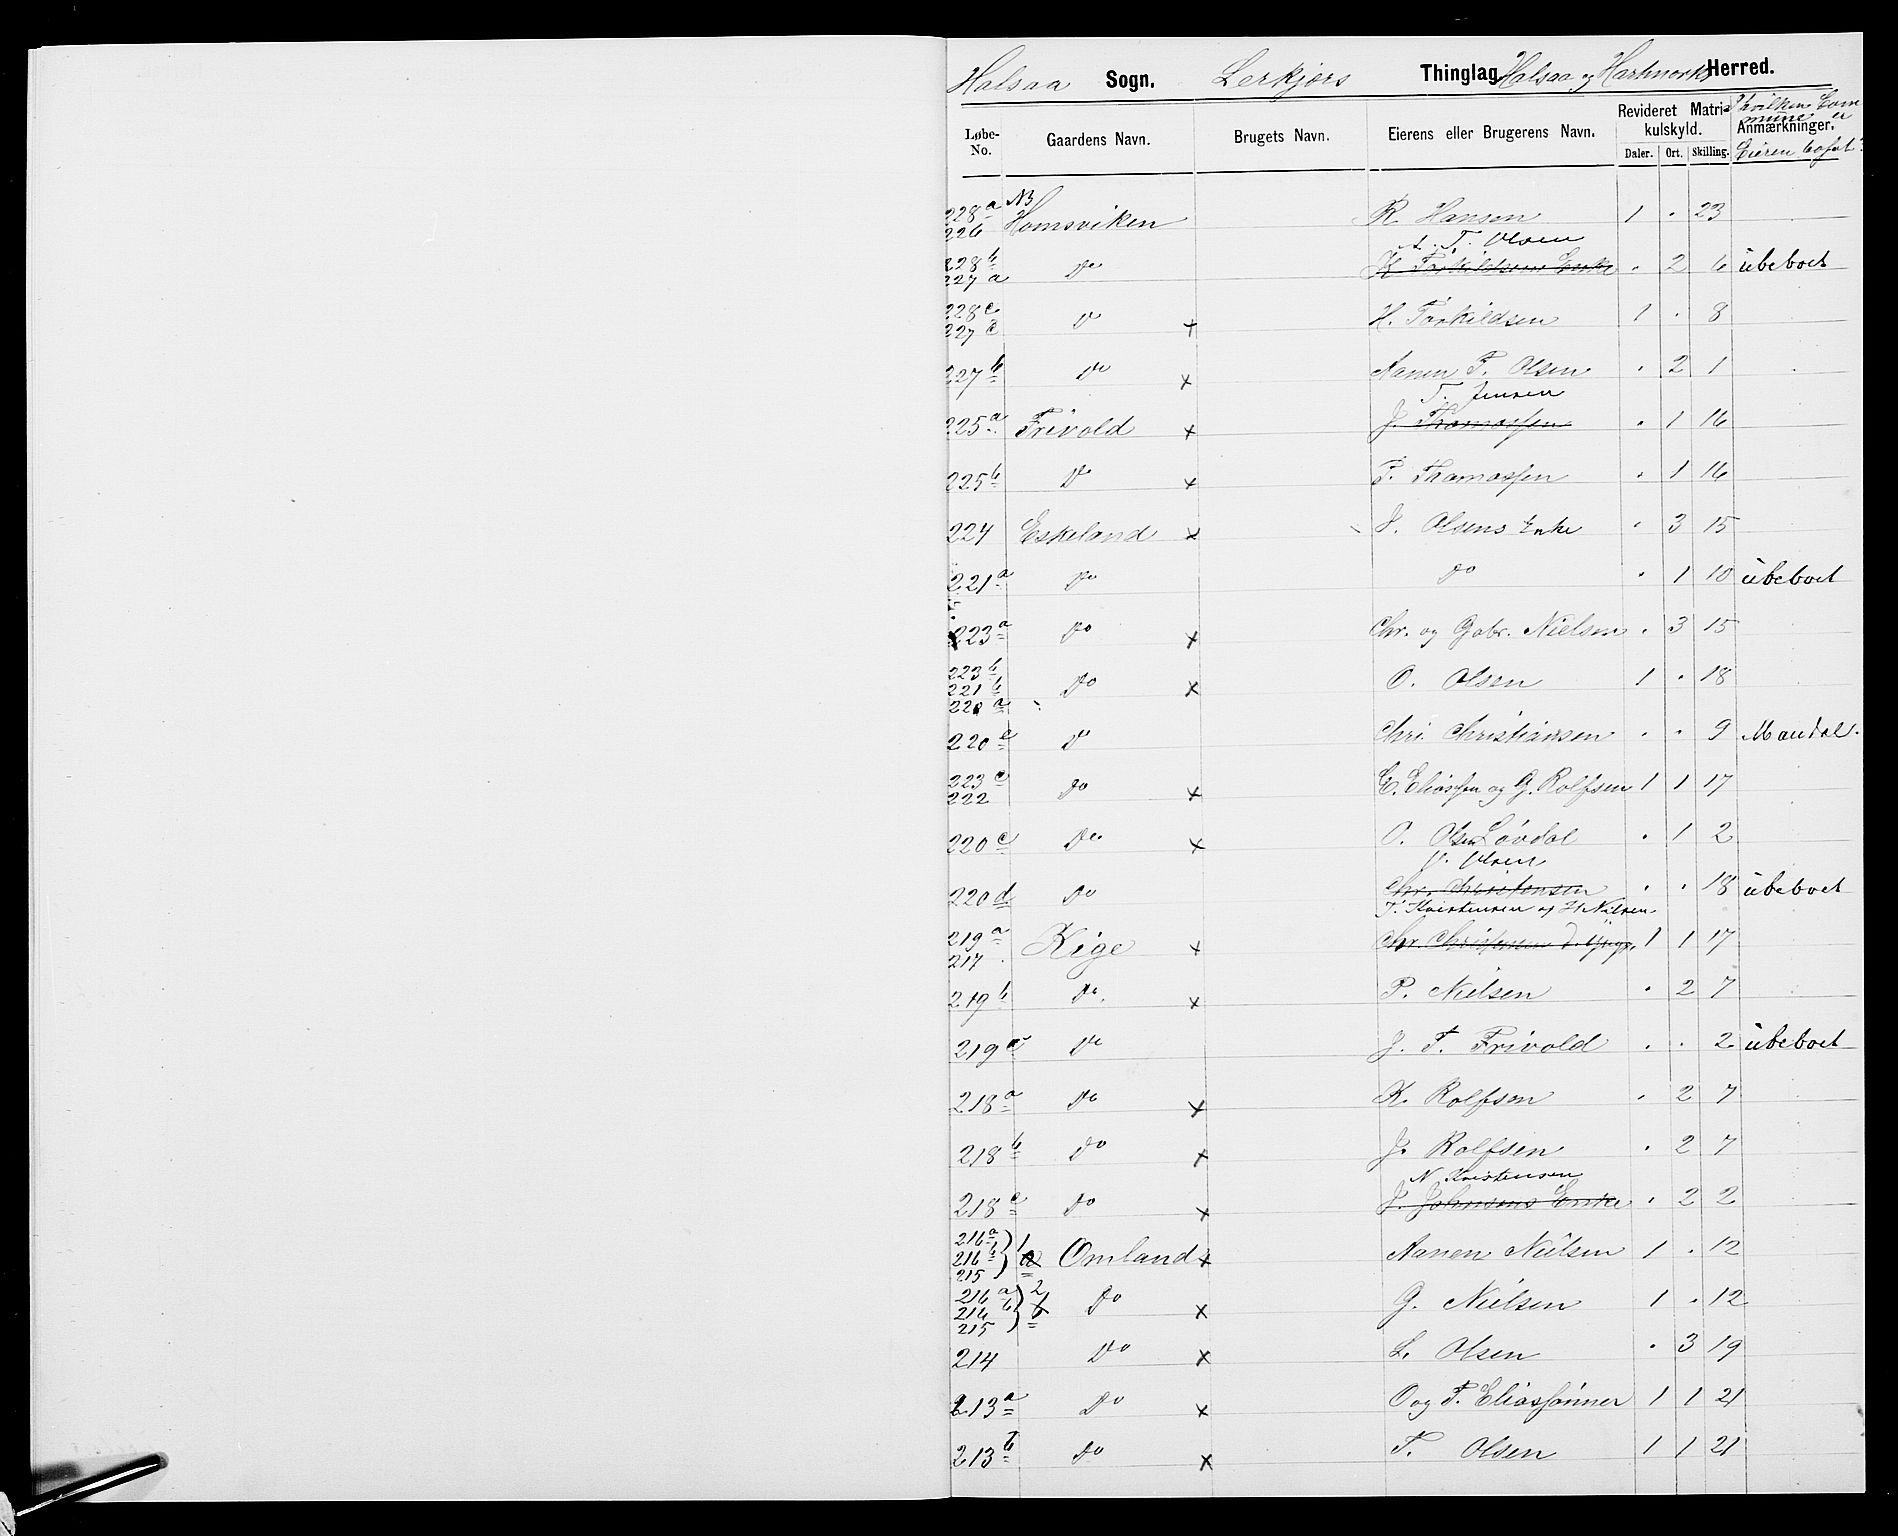 Halsaa Sogn. Lerkjørs Thinglag Halsaa og Hartmarks Herred.
Løbe-No. Gaardens Navn. Brugets Navn. Eierens eller Brugerens Navn. Revideret Matrikulskyld. Daler. Ort. Skilling. Anmærkninger. I hvilken Commune er Eieren bosat?
228a 226 NB Homsviken R. Hansen 1 . 23
A. T. Olsen
228b 227a Do K. Torkildsens Enke . 2 6 ubeboet
228c 227c Do x H. Torkildsen 1 . 8
227b Do x Aanen T. Olsen . 2 1
T. Jensen
225a Frivold x J. Thomassen . 1 16
225b Do x P. Thomassen . 1 16
224 Eskeland x J. Olsens Enke . 3 15
221a Do Do . 1 10 ubeboet
223a Do x Chr. og Gabr. Nielsen . 3 15
223b 221b 220a Do x O. Olsen 1 . 18
220 Do Chri Christiansen . . 9 Mandal.
223c 222 Do x E. Eliassen og G. Rolfsen 1 1 17
220c Do x O. Olsen Løvdal . 1 2
Olsen
220d Do Chr. Christensen . . 18 ubeboet
T. Kristensen og H Nilsen
219a 217 Kige x Chr. Christensen 1 1 17
219b Do x P. Nielsen . 2 7
219c Do J. T. Frivold . . 2 ubeboet
218a Do x K. Rolfsen . 2 7
218b Do x J. Rolfsen . 2 7
N Kristensen
218c Do x J. Johnsens Enke . 2 2
216a 216b 215 1 Omland x Aanen Nielsen 1 . 12
216a 216b 215 2 Do x G. Nielsen 1 . 12
214 Do x L. Olsen . 3 19
213a Do x O og T. Eliassønner 1 1 21
213b Do x T. Olsen 1 1 21